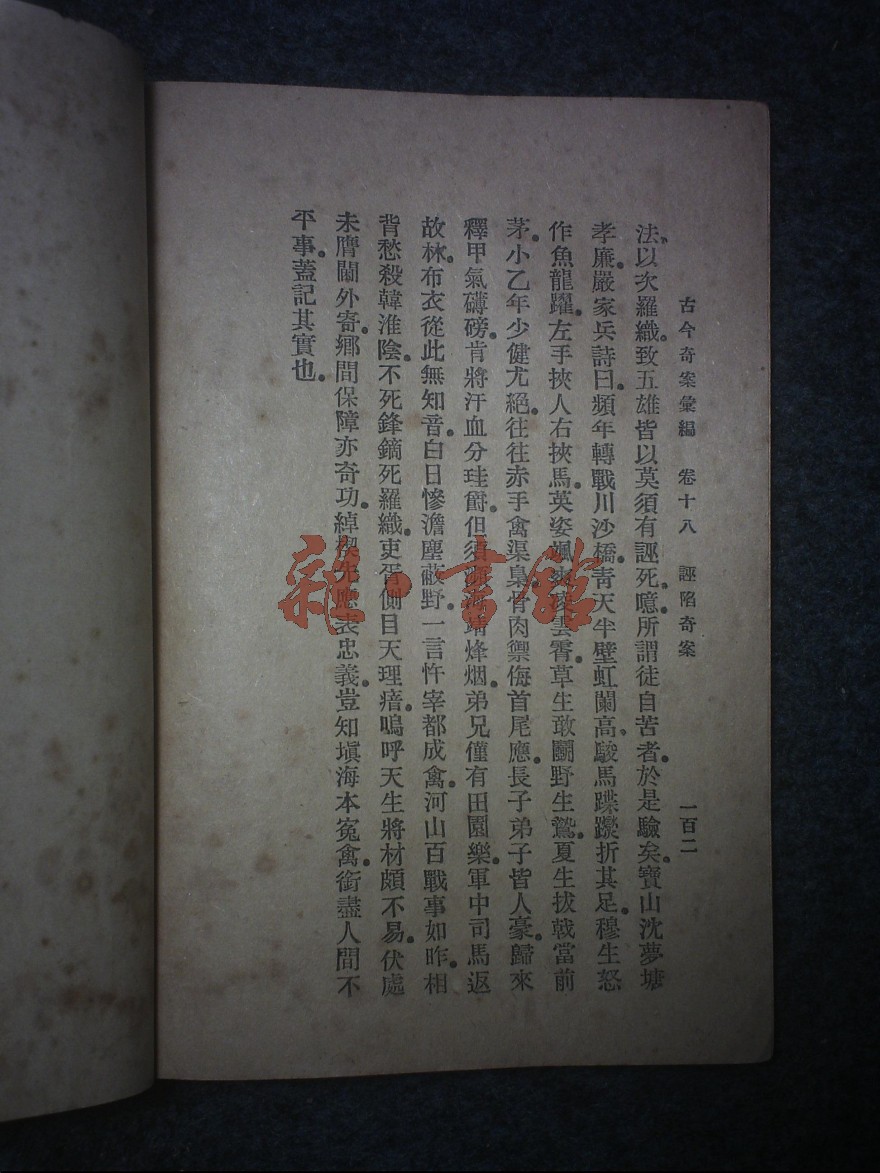 古今奇案彙編　卷十八　誣陷奇案　一百二
法、以次羅織。致五雄皆以莫須有誣死。噫。所謂徒自苦者。於是驗矣。寶山沈夢塘
孝廉。嚴家兵詩曰。頻年轉戰川沙橋。青天半壁虹闌高。駿馬蹀躞折其足。穆生怒
作魚龍躍。左手挾人右挾馬。英姿颯爽凌雲霄。草生敢鬭野生鷙。夏生拔戟當前
茅。小乙年少健尤絕。往往赤手禽渠梟。骨肉禦侮首尾應。長子弟子皆人豪。歸來
釋甲氣礴磅。肯將汗血分珪爵。但須 海靖烽烟。弟兄僅有田園樂。軍中司馬返
故林。布衣從此無知音。白日慘澹塵蔽野。一言忤宰都成禽。河山百戰事如昨。相
背愁殺韓淮陰。不死鋒鏑死羅織。吏胥側目天理瘖。嗚呼天生將材頗不易。伏處
未膺閫外寄。鄉間保障亦奇功。綽楔 應表忠義。豈知塡海本冤禽。銜盡人間不
平事。蓋記其實也。
雜·書館